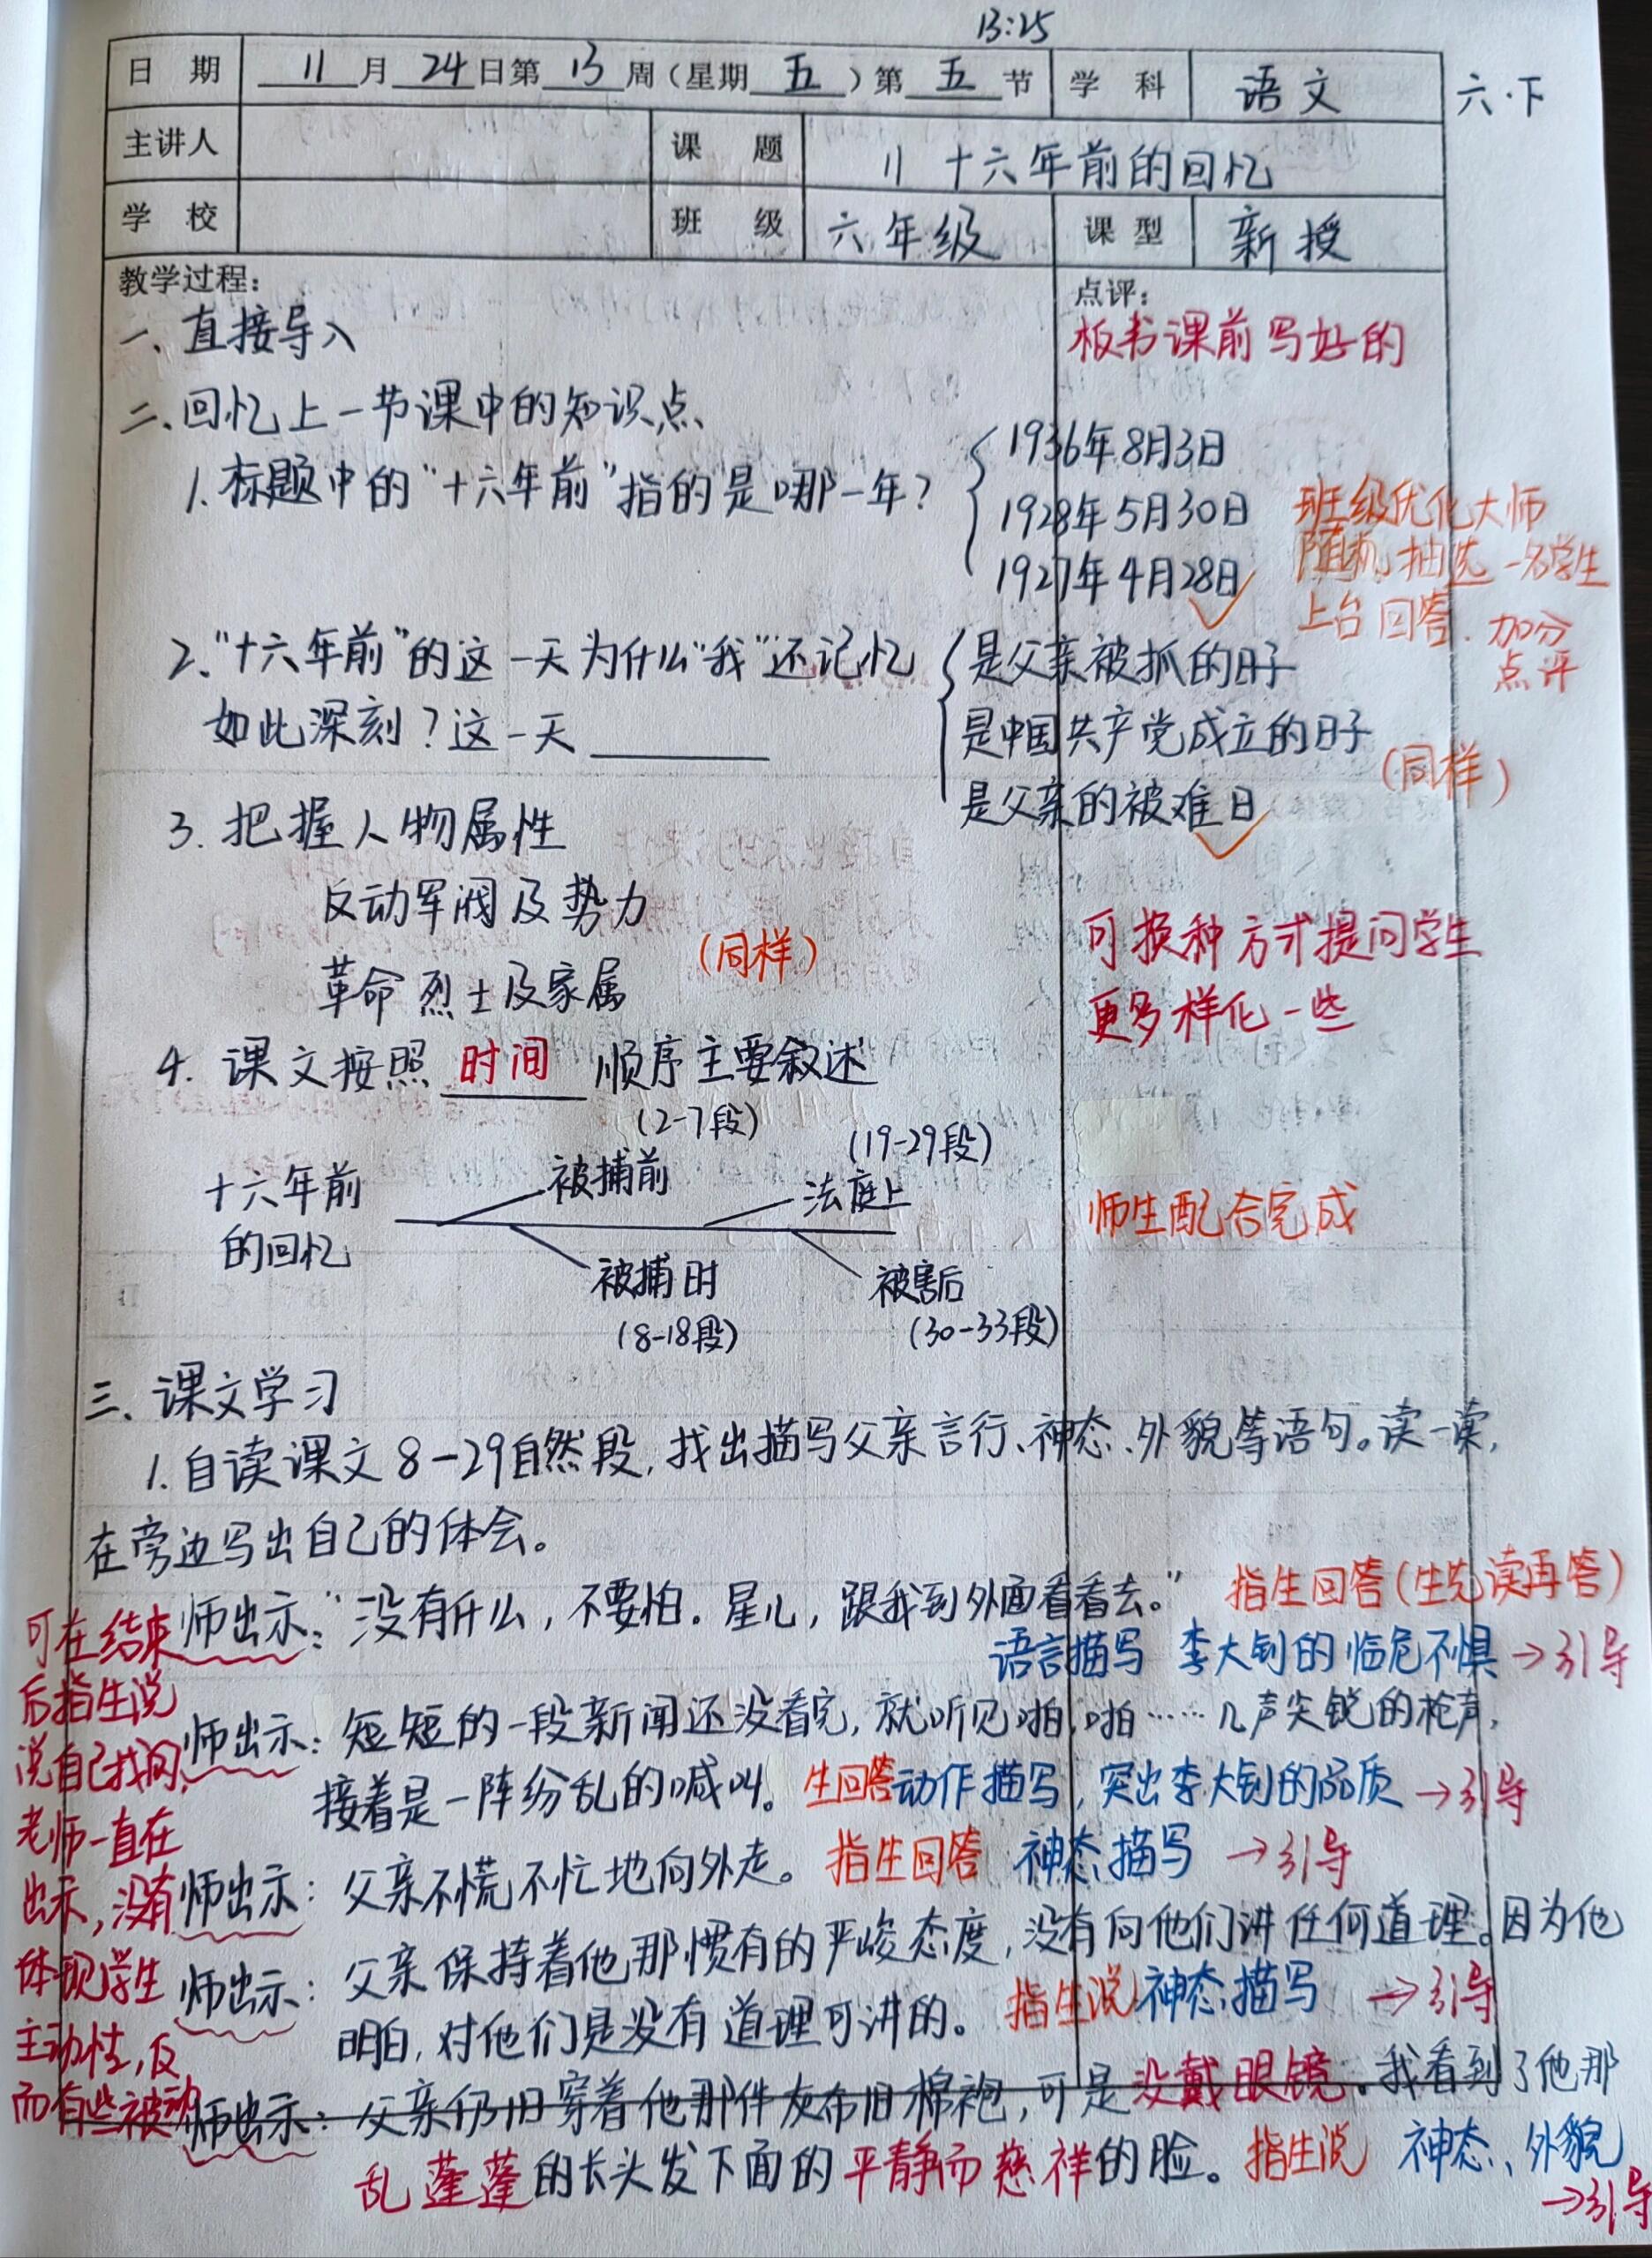 13:25
日期 11月24日第13周（星期五）第五节 学科 语文 六·下
主讲人 课题 11 十六年前的回忆
学校 班级 六年级 课型 新授
教学过程： 点评：
一、直接导入
板书课前写好的
二、回忆上一节课中的知识点
1.标题中的“十六年前”指的是哪一年？
1936年8月3日
1928年5月30日
1927年4月28日
班级优化大师
随机抽选一名学生
上台回答.加分
点评
2.“十六年前”的这一天为什么“我”还记忆
如此深刻？这一天
是父亲被抓的日子
是中国共产党成立的日子
是父亲的被难日
（同样）
3. 把握人物属性
反动军阀及势力
革命烈士及家属
（同样）
可换种方式提问学生
更多样化一些
4. 课文按照 时间 顺序主要叙述
(2-7段)
(19-29段)
十六年前
的回忆
被捕前
法庭上
被捕时
被害后
(8-18段)
(30-33段)
师生配合完成
三、课文学习
1.自读课文8-29自然段，找出描写父亲言行、神态、外貌等语句。读一读，
在旁边写出自己的体会。
师出示：“没有什么，不要怕。星儿，跟我到外面看看去。” 指生回答（生先读再答）
语言描写 李大钊的临危不惧→引导
师出示：短短的一段新闻还没看完，就听见啪，啪……几声尖锐的枪声，
接着是一阵纷乱的喊叫。生回答动作描写，突出李大钊的品质→引导
师出示：父亲不慌不忙地向外走。指生回答 神态描写 →引导
师出示：父亲保持着他那惯有的严峻态度，没有向他们讲任何道理。因为他
明白，对他们是没有道理可讲的。指生说 神态描写 →引导
师出示：父亲仍旧穿着他那件灰布旧棉袍，可是没戴眼镜。我看到了他那
乱蓬蓬的长头发下面的平静而慈祥的脸。指生说 神态、外貌
→引导
可在结束
后指生说
说自己找的，
老师一直在
出示，没有
体现学生
主动性，反
而有些被动